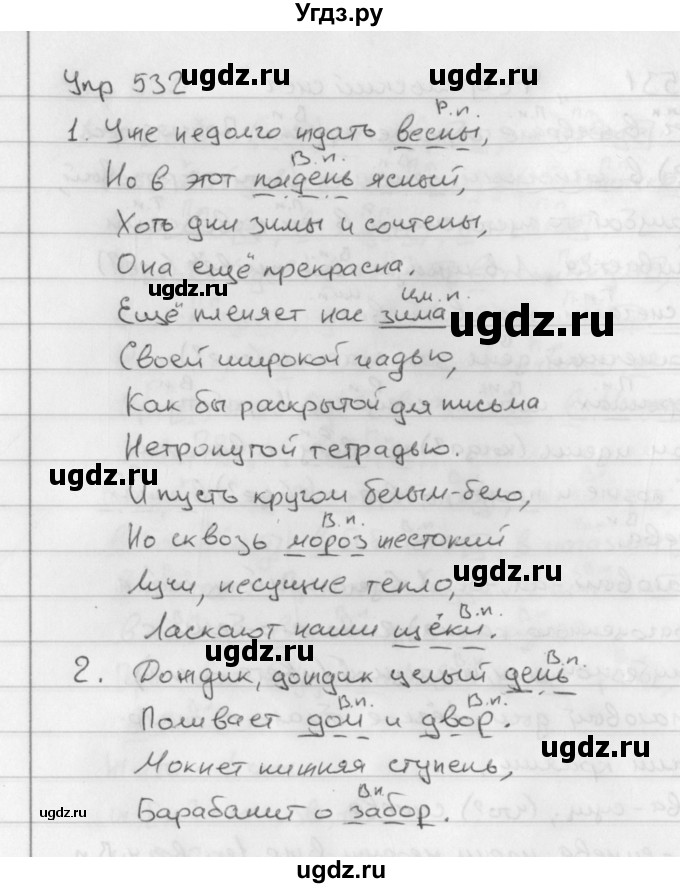 Угдз.ру
Упр 532
ugdz.ru
Р.п.
1. Уже недолго ждать весны,
В.п.
Но в этот полдень ясный,
Хоть дни зимы и сочтены,
Она ещё прекрасна.
ugdz.ru
Им.п.
Ещё пленяет нас зима
ugdz.ru
Своей широкой гладью,
Как бы раскрытой для письма
Нетронутой тетрадью.
ugdz.ru
И пусть кругом белым-бело,
В.п.
Но сквозь мороз жестокий
ugdz.ru
Лучи, несущие тепло,
В.п.
Ласкают наши щёки.
ugdz.ru
В.п.
2. Дождик, дождик целый день
В.п. В.п.
Поливает дом и двор.
ugdz.ru
Мокнет нижняя ступень,
В.п.
Барабанит о забор.
ugdz.ru
ugdz.ru
ugdz.ru